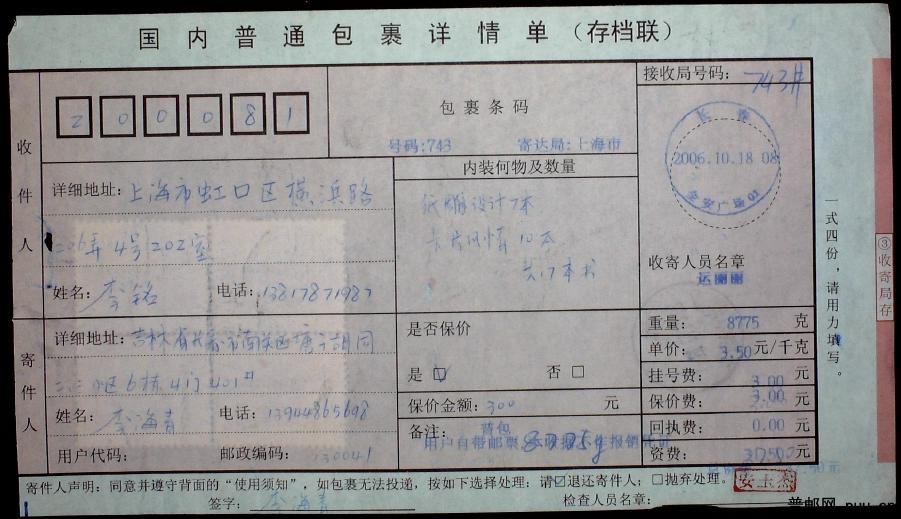 国内普通包裹详情单（存档联）
接收局号码： 743#
200081
包裹条码
号码:743 寄达局:上海市
收件人
详细地址：上海市虹口区横浜路
二〇六弄4号202室
姓名：李铭 电话：13817871987
内装何物及数量
纸雕设计7本
卡片风情10本
共17本书
长春
2006.10.18 08
全安广场02
收寄人员名章
寄人
详细地址：吉林省长春市南关区
区6栋4门401
姓名：李海青 电话：13944865698
用户代码： 邮政编码：130041
是否保价
是 ☑ 否 □
保价金额：300 元
备注： 背包
用户自带邮票
8775g
重量： 8775 克
单价： 3.50 元/千克
挂号费： 3.00 元
保价费： 3.00 元
回执费： 0.00 元
资费： 元
寄件人声明：同意并遵守背面的“使用须知”，如包裹无法投递，按如下选择处理：请☑退还寄件人；□抛弃处理。
安玉杰
签字：李海青 检查人员名章：
一式四份，请用力填写。
③收寄局存
普邮网